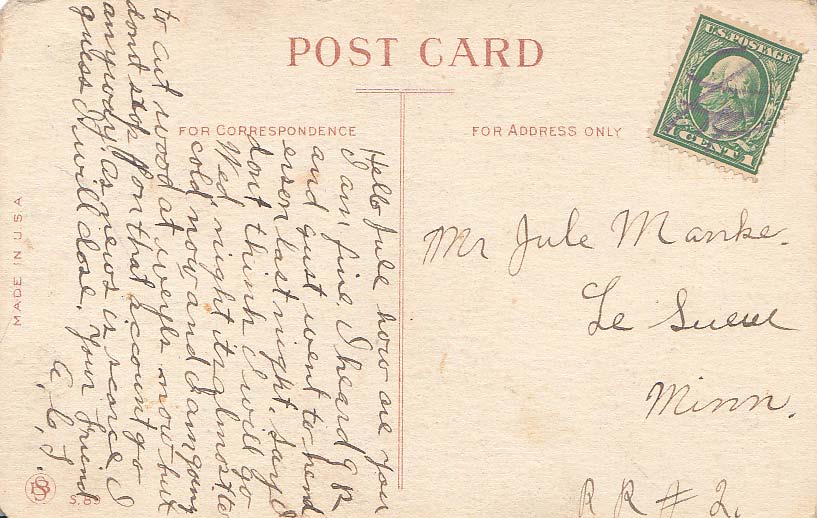 POST CARD
FOR CORRESPONDENCE
FOR ADDRESS ONLY
U.S. POSTAGE
1 CENT 1
Hello Jule how are you
I am fine I heard G R
and gust went to hend
erson last night. say I
dont think I will go
Wed, night its almost to
cold now and I am going
to cut wood at now but
dont stop for that account go
anyway. as news is scarce I
guess I will close. Your Friend
A. C. J.
Mr Jule Manke.
Le Sueur
Minn.
RR # 2.
MADE IN U S A
S. 69